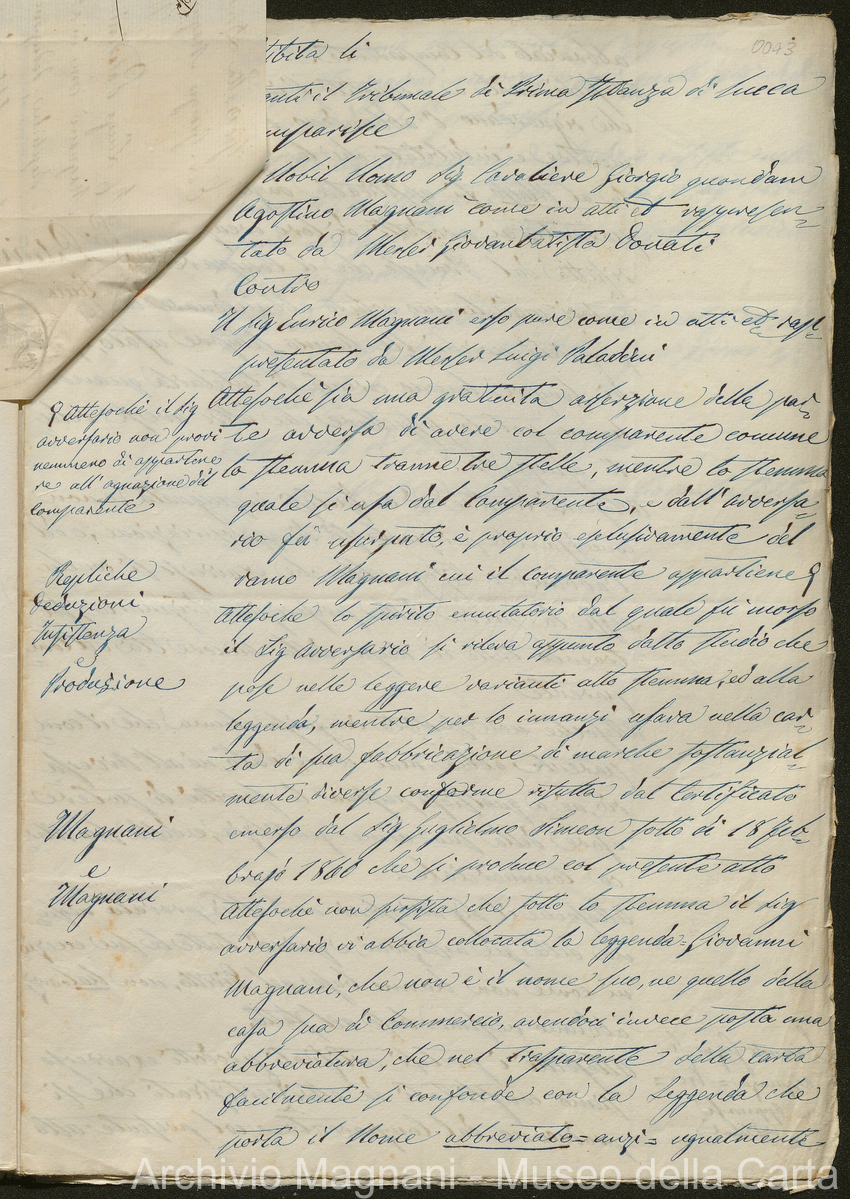 0043
tibita li
anti il Tribunale di Prima Istanza di Lucca
omparisce
Nobil Uomo Sig Cavaliere Giorgio quondam
Agostino Magnani come in atti et rappresen=
tato da Messer Giovanbatista Donati
Contro
Il Sig Enrico Magnani esso pure come in atti et rap=
presentato da Messer Luigi Paladini
Attesochè sia una gratuita asserzione della par=
te avversa di avere col comparente comune
lo stemma tranne tre stelle, mentre lo stemma
quale si usa dal Comparente, e dall'avversa=
rio fù usurpato, è proprio esclusivamente del
ramo Magnani cui il comparente appartiene
Attesochè lo spirito emulatorio dal quale fù mosso
il Sig Avversario si rileva appunto dallo studio che
pose nelle leggere varianti allo stemma, ed alla
leggenda, mentre per lo innanzi usava nella car=
ta di sua fabbricazione di marche sostanzial=
mente diverse conforme risulta dal Certificato
emesso dal Sig Guglielmo Simeon sotto di 18 Feb=
brajo 1860 che si produce col presente atto
Attesochè non sussista che sotto lo stemma il Sig
avversario vi abbia collocata la leggenda = Giovanni
Magnani, che non è il nome suo, ne quello della
casa sua di Commercio, avendoci invece posta una
abbreviatura, che nel trasparente della carta
facilmente si confonde con la Leggenda che
porta il Nome abbreviato = anzi = ugualmente
Attesochè il Sig
avversario non provi
nemmeno di appartene
re all'agnazione del
Comparente
Repliche
Deduzioni
Insistenza
e
Produzione
Magnani
e
Magnani
Archivio Magnani - Museo della Carta